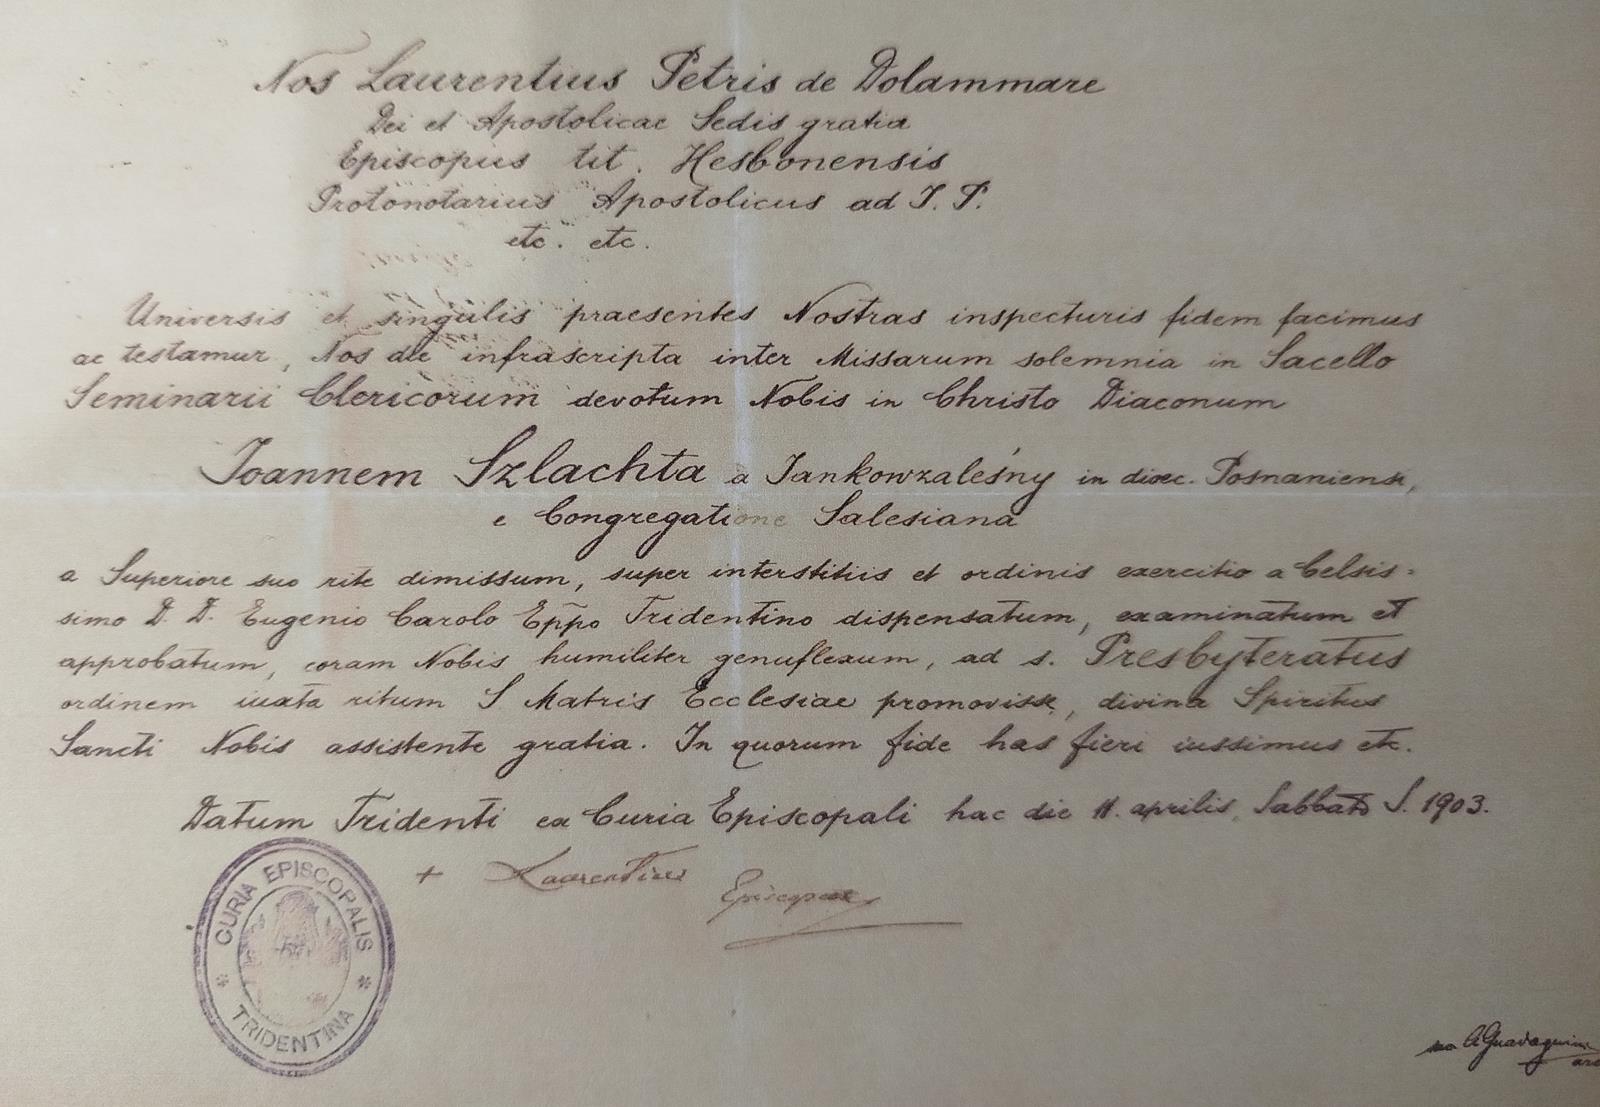 Nos Laurentius Petris de Dolammare
Dei et Apostolicae Sedis gratia
Episcopus tit. Hesbonensis
Protonotarius Apostolicus ad I. P.
etc. etc.
Universis et singulis praesentes Nostras inspecturis fidem facimus
ac testamur, Nos die infrascripta inter Missarum solemnia in Sacello
Seminarii Clericorum devotum Nobis in Christo Diaconum
Joannem Szlachta a Jankowzaleśny in dioec. Posnaniensi,
e Congregatione Salesiana
a Superiore suo rite dimissum, super interstitiis et ordinis exercitio a Celsis-
simo D. D. Eugenio Carolo Eppo Tridentino dispensatum, examinatum et
approbatum, coram Nobis humiliter genuflexum, ad s. Presbyteratus
ordinem iuxta ritum S Matris Ecclesiae promovisse, divina Spiritus
Sancti Nobis assistente gratia. In quorum fide has fieri iussimus etc.
Datum Tridenti ex Curia Episcopali hac die 11. aprilis, Sabbato S. 1903.
+ Laurentius Episcopus
CURIA EPISCOPALIS
TRIDENTINA